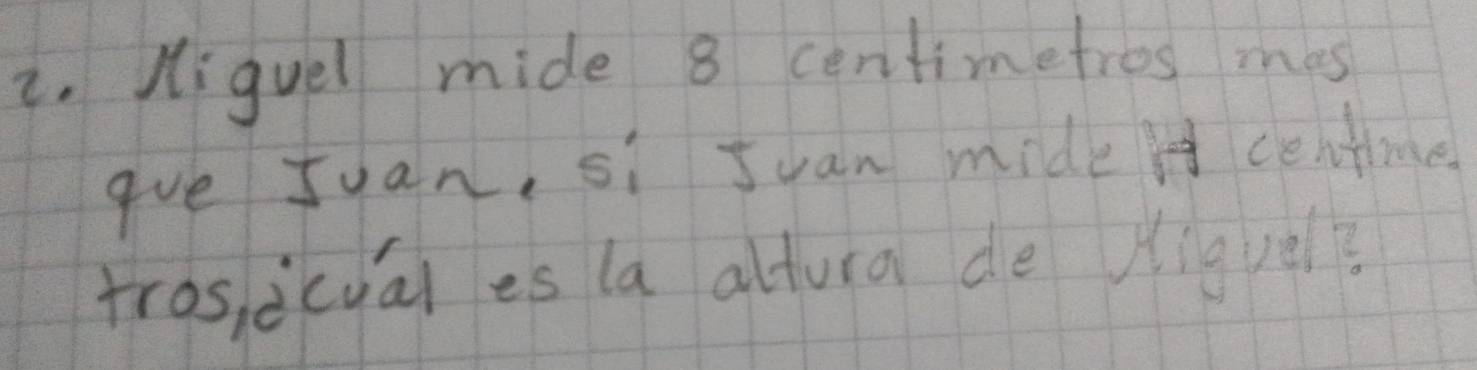 2. Miguel mide 8 centimetros mas
que Juan, si Juan mide H centime
tros, ¿cuál es la altura de Miguel?